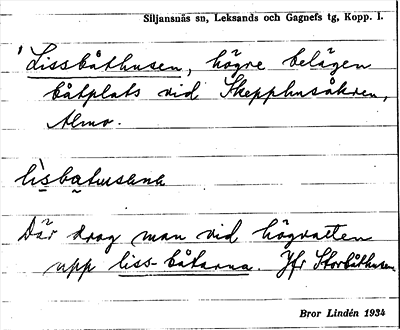 Siljansnäs sn, Leksands och Gagnefs tg, Kopp. l.
'Lissbåthusen, högre belägen
båtplats vid Skepphusåkren,
Almo.
Där drog man vid högvatten
upp liss-båtarna. Jfr Storbåthusen
Bror Lindén 1934